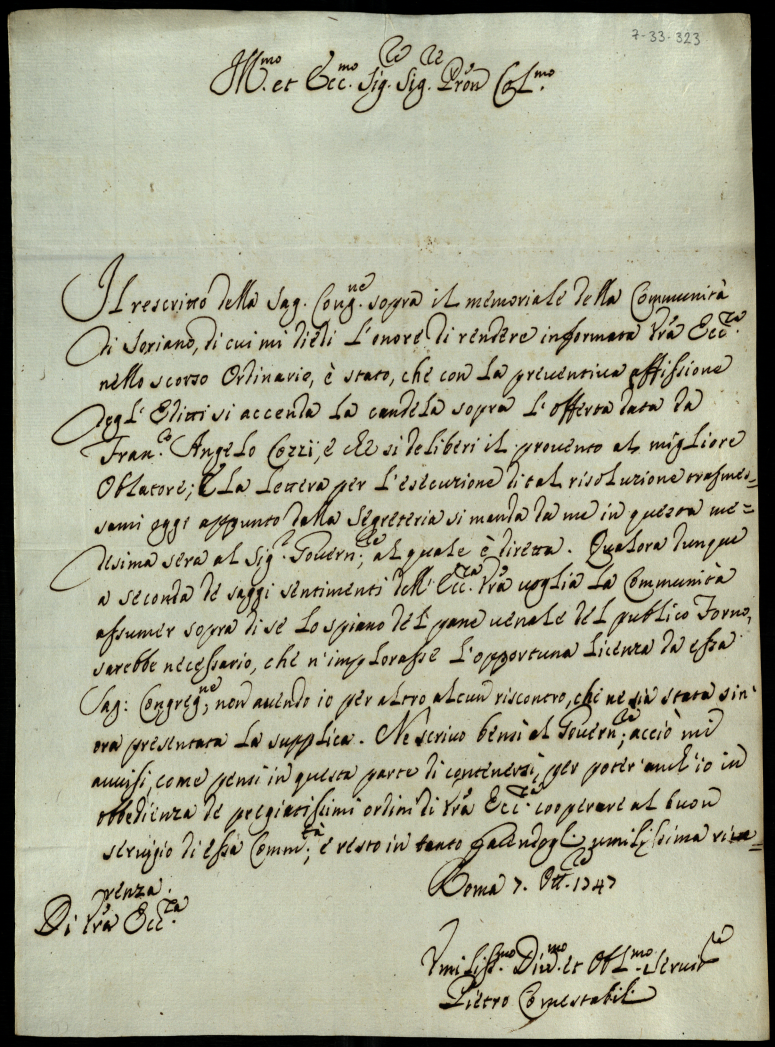 7-33-323
Ill.mo et Ecc.mo Sig.re Sig.re Pròn Col.mo
Il rescritto della Sag. Cong.ne sopra il memoriale della Communità
di Soriano, di cui mi diedi l'onore di rendere informata Vrà Ecc.za
nello scorso Ordinario, è stato, che con la preventiva affissione
degl'Editti si accenda la candela sopra l'offerta data da
Fran.co Angelo Cozzi, e che si deliberi il provento al migliore
Oblatore; E la lettera per l'esecuzione di tal risoluzione trasmes=
sami oggi appunto dalla Segreteria si manda da me in questa me=
desima sera al Sig.r Govern.re, al quale è diretta. Qualora dunque
a seconda de saggi sentimenti dell'Ecc.za Vrà voglia la Communità
assumer sopra di se lo spiano del pane venale del publico Forno,
sarebbe necessario, che n'implorasse l'opportuna licenza da essa
Sag: Congreg.ne, non avendo io per altro alcun riscontro, che ne sia stata sin'
ora presentata la supplica. Ne scrivo bensì al Govern.re, acciò mi
avvisi, come pensi in questa parte di contenersi, per poter anch'io in
obbedienza de pregiatissimi ordini di Vrà Ecc.za cooperare al buon
servigio di essa Comm.tà, e resto in tanto facendogli umilissima rive=
renza.
Roma 7. Ott.re 1747
Di Vrà Ecc.za
Umiliss.mo Div.mo et Obl.mo Servit.re
Pietro Connestabili